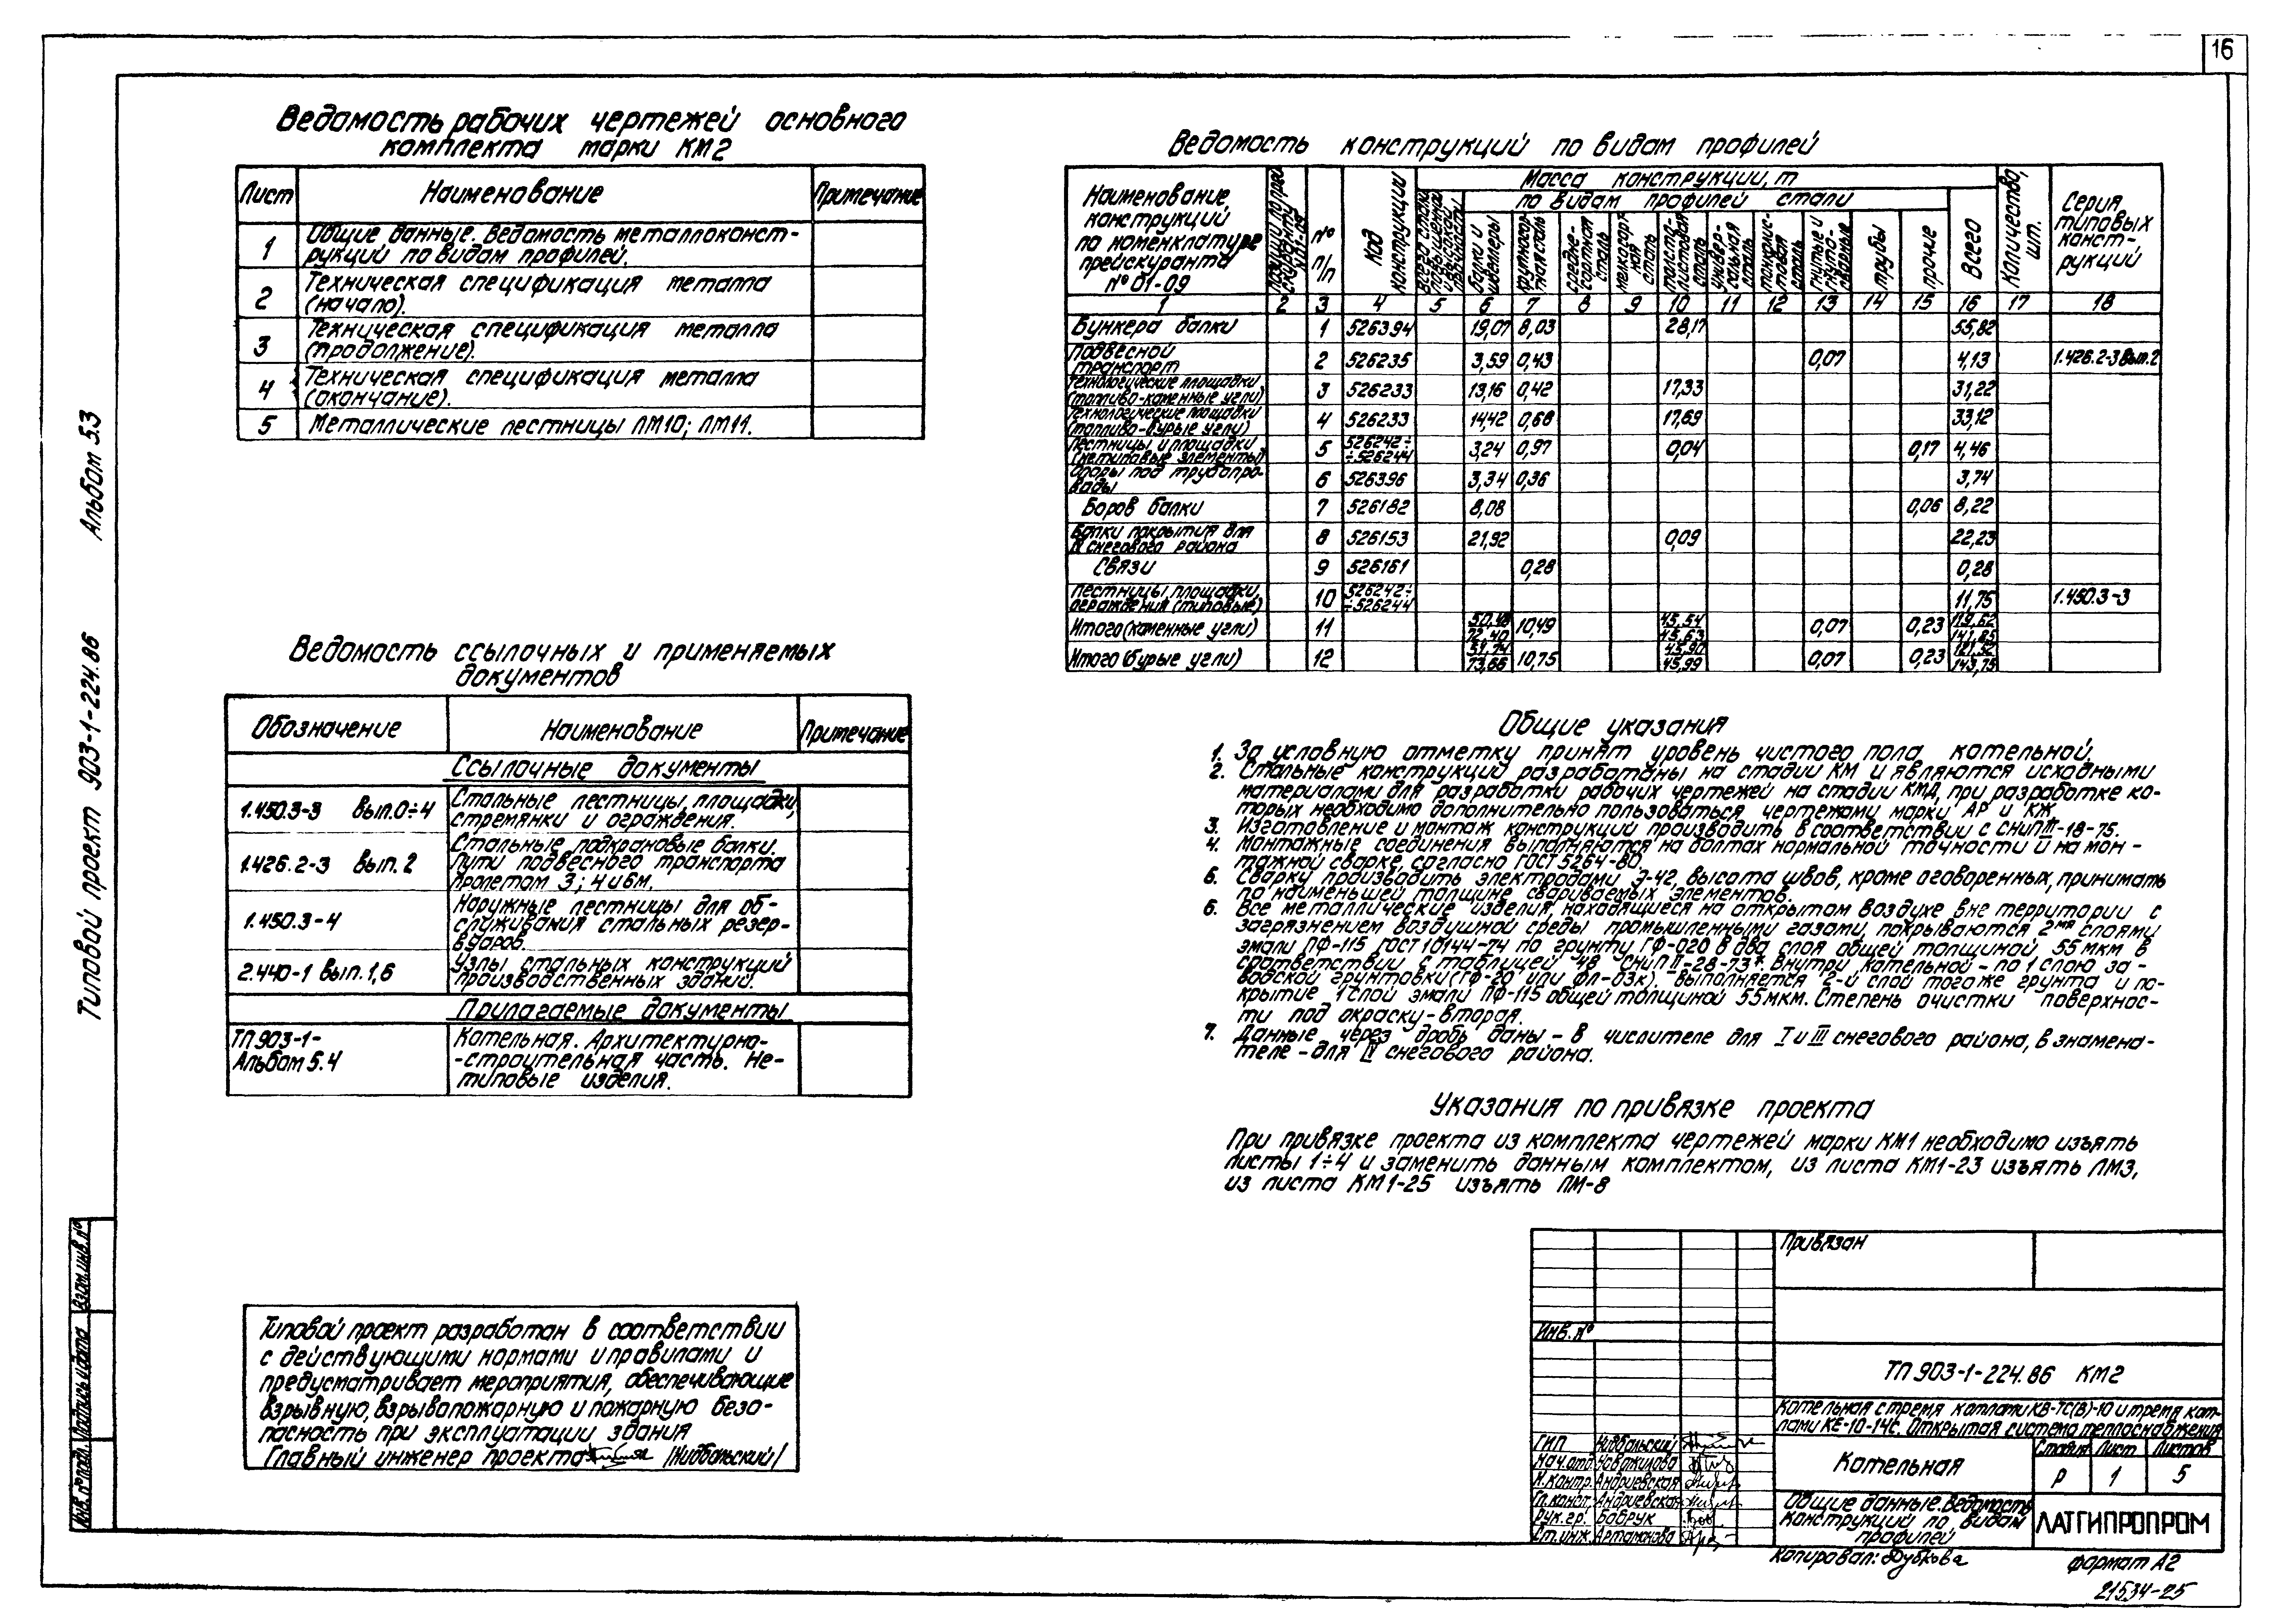 16
Ведомость рабочих чертежей основного
комплекта марки КМ2
Лист Наименование Примечание
1 Общие данные. Ведомость металлоконст-
рукций по видам профилей.
2 Техническая спецификация металла
(начало).
3 Техническая спецификация металла
(продолжение).
4 Техническая спецификация металла
(окончание).
5 Металлические лестницы ЛМ10; ЛМ11.
Ведомость ссылочных и применяемых
документов
Обозначение Наименование Примечание
Ссылочные документы
1.450.3-3 вып.0÷4 Стальные лестницы, площадки,
стремянки и ограждения.
1.426.2-3 вып. 2 Стальные подкрановые балки.
Пути подвесного транспорта
пролетом 3; 4 и 6м.
1.450.3-4 Наружные лестницы для об-
служивания стальных резер-
вуаров.
2.440-1 вып.1,6 Узлы стальных конструкций
производственных зданий.
Прилагаемые документы
ТП 903-1-
Альбом 5.4
Котельная. Архитектурно-
-строительная часть. Не-
типовые изделия.
Типовой проект разработан в соответствии
с действующими нормами и правилами и
предусматривает мероприятия, обеспечивающие
взрывную, взрывопожарную и пожарную безо-
пасность при эксплуатации здания
Главный инженер проекта /Нидбальский/
Типовой проект 903-1-224.86 Альбом 5.3
Взам.инв.№
Подпись и дата
Инв.№ подл.
Ведомость конструкций по видам профилей
Наименование конструкций по номенклатуре прейскуранта №01-09
№ п/п
Код конструкции
Масса конструкции, т
по видам профилей стали
балки и швеллеры
крупносортная сталь
среднесортная сталь
мелкосортная сталь
толстолистовая сталь
универсальная сталь
тонколистовая сталь
гнутые и гнутосварные
трубы
прочие
Всего
Количество, шт.
Серия типовых конст-
рукций
1 2 3 4 5 6 7 8 9 10 11 12 13 14 15 16 17 18
Бункера балки 1 526394 19,07 8,03 28,17 55,82
Подвесной транспорт 2 526235 3,59 0,43 0,07 4,13 1.426.2-3 Вып.2
Технологические площадки (топливо-каменные угли) 3 526233 13,16 0,42 17,33 31,22
Технологические площадки (топливо-бурые угли) 4 526233 14,42 0,68 17,69 33,12
Лестницы и площадки (нетиповые элементы) 5 526242÷ ÷526244 3,24 0,97 0,04 0,17 4,46
Опоры под трубопро-
воды 6 526396 3,34 0,36 3,74
Боров балки 7 526182 8,08 0,06 8,22
Балки покрытия для IV снегового района 8 526153 21,92 0,09 22,23
Связи 9 526161 0,28 0,28
Лестницы, площадки, ограждения (типовые) 10 526242÷ ÷526244 11,75 1.450.3-3
Итого (каменные угли) 11 50,48 72,40 10,49 45,54 45,63 0,07 0,23 119,62 141,85
Итого (бурые угли) 12 51,74 73,66 10,75 45,90 45,99 0,07 0,23 121,52 143,75
Общие указания
1. За условную отметку принят уровень чистого пола котельной.
2. Стальные конструкций разработаны на стадии КМ и являются исходными
материалами для разработки рабочих чертежей на стадии КМД, при разработке ко-
торых необходимо дополнительно пользоваться чертежами марки АР и КЖ.
3. Изготовление и монтаж конструкций производить в соответствии с СНиП III-18-75.
4. Монтажные соединения выполняются на болтах нормальной точности и на мон-
тажной сварке, согласно ГОСТ 5264-80
5. Сварку производить электродами Э-42, высота швов, кроме оговоренных, принимать
по наименьшей толщине свариваемых элементов.
6. Все металлические изделия, находящиеся на открытом воздухе вне территории с
загрязнением воздушной среды промышленными газами, покрываются 2мя слоями
эмали ПФ-115 ГОСТ 10144-74 по грунту ГФ-020 в два слоя общей толщиной 55 мкм в
соответствии с таблицей 48 СНиП II-28-73*. Внутри котельной - по 1 слою за-
водской грунтовки (ГФ-20 или ФЛ-03к). Выполняется 2-й слой того же грунта и по-
крытие 1 слой эмали ПФ-115 общей толщиной 55мкм. Степень очистки поверхнос-
ти под окраску - вторая.
7. Данные через дробь даны - в числителе для I и III снегового района, в знамена-
теле - для IV снегового района.
Указания по привязке проекта
При привязке проекта из комплекта чертежей марки КМ1 необходимо изъять
листы 1÷4 и заменить данным комплектом, из листа КМ1-23 изъять ЛМ3,
из листа КМ1-25 изъять ЛМ-8
Привязан
Инв.№
ТП 903-1-224.86 КМ2
Котельная с тремя котлами КВ-ТС(В)-10 и тремя кот-
лами КЕ-10-14с. Открытая система теплоснабжения
ГИП Нидбальский
Нач.отд. Новожилова
Н.контр. Андриевская
Гл.конст. Андриевская
Рук.гр. Бобрук
Ст.инж. Артамонова
Котельная
Стадия Лист Листов
Р 1 5
Общие данные. Ведомость
конструкций по видам
профилей
ЛАТГИПРОПРОМ
Копировал: Дубкова
формат А2
21534-25